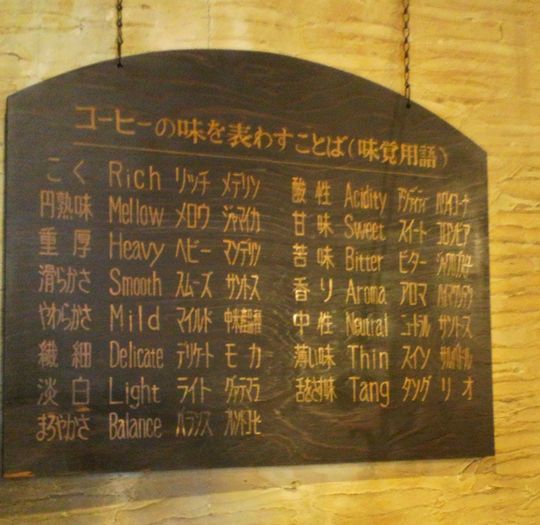 コーヒーの味を表わすことば(味覚用語)
こく Rich リッチ メデリン
円熟味 Mellow メロウ ジャマイカ
重厚 Heavy ヘビー マンデリン
滑らかさ Smooth スムーズ サントス
やわらかさ Mild マイルド
繊細 Delicate デリケート モカ
淡白 Light ライト グァテマラ
まろやかさ Balance バランス ブレンドコーヒー
酸性 Acidity アシディティ ハワイコナ
甘味 Sweet スイート コロンビア
苦味 Bitter ビター
香り Aroma アロマ
中性 Neutral ニュートラル サントス
薄い味 Thin スィン サルバドール
舌をさす味 Tang タング リオ